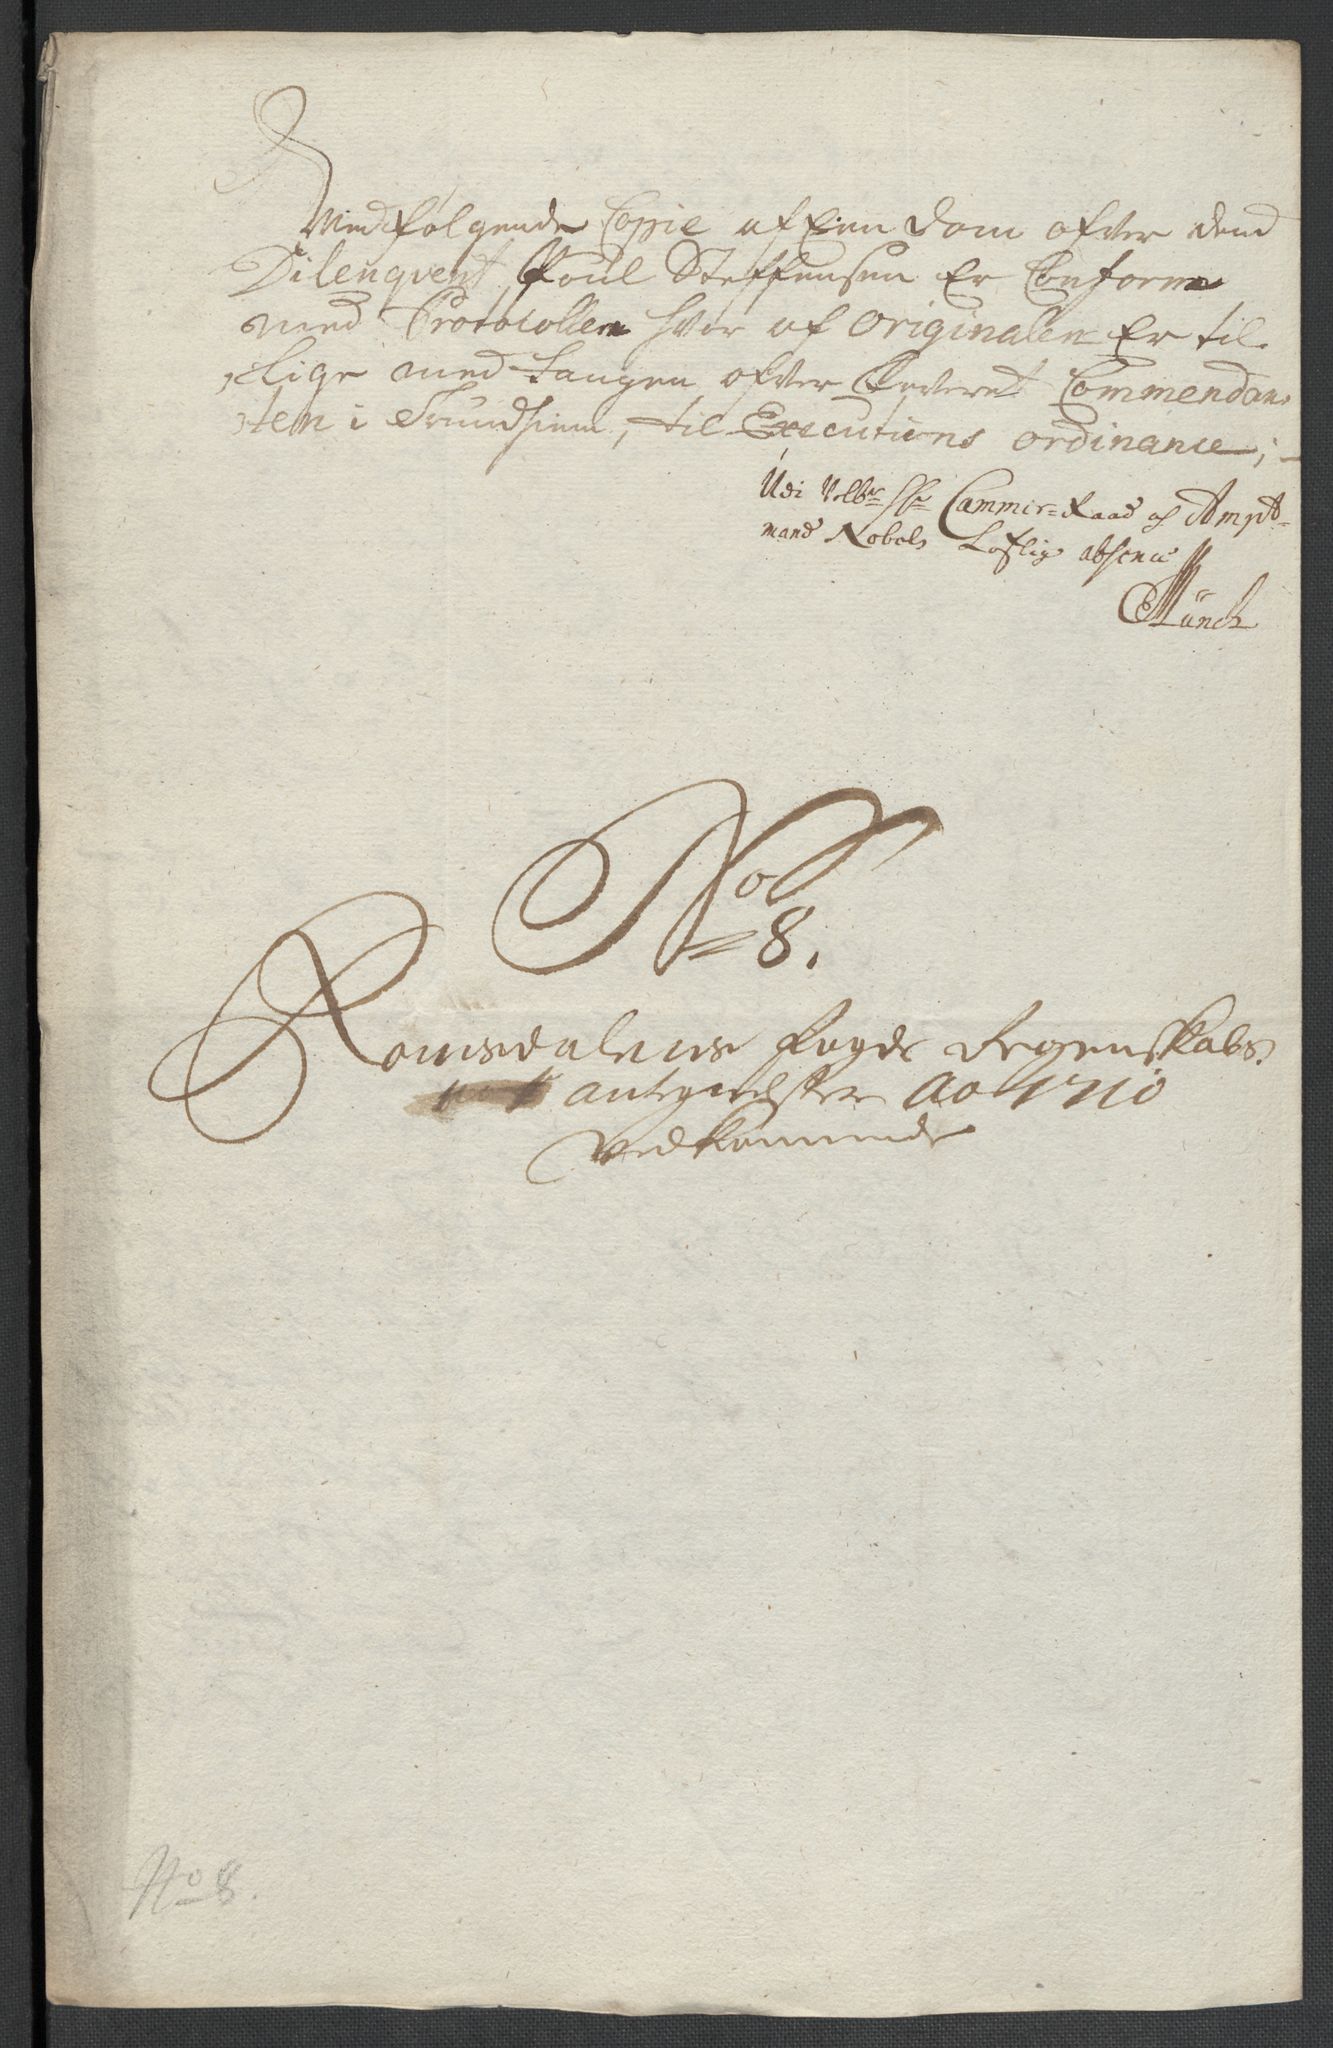 Medfølgende Copie af Een dom ofver dend
Dilenqvent Poul Steffensen Er Conform
med Protocollen hvor af originalen Er til
lige med fangen ofver leveret Commendan,
ten i Trundhiem, til Executions ordinance;
Udi Velbr Hr Cammer=Raad og Ampt-
mand Nobels Loflig absence
Münch
No 8.
Romsdalens fogds Regenskabs
antegnelster Ao 1710
vedkommende
No 8.